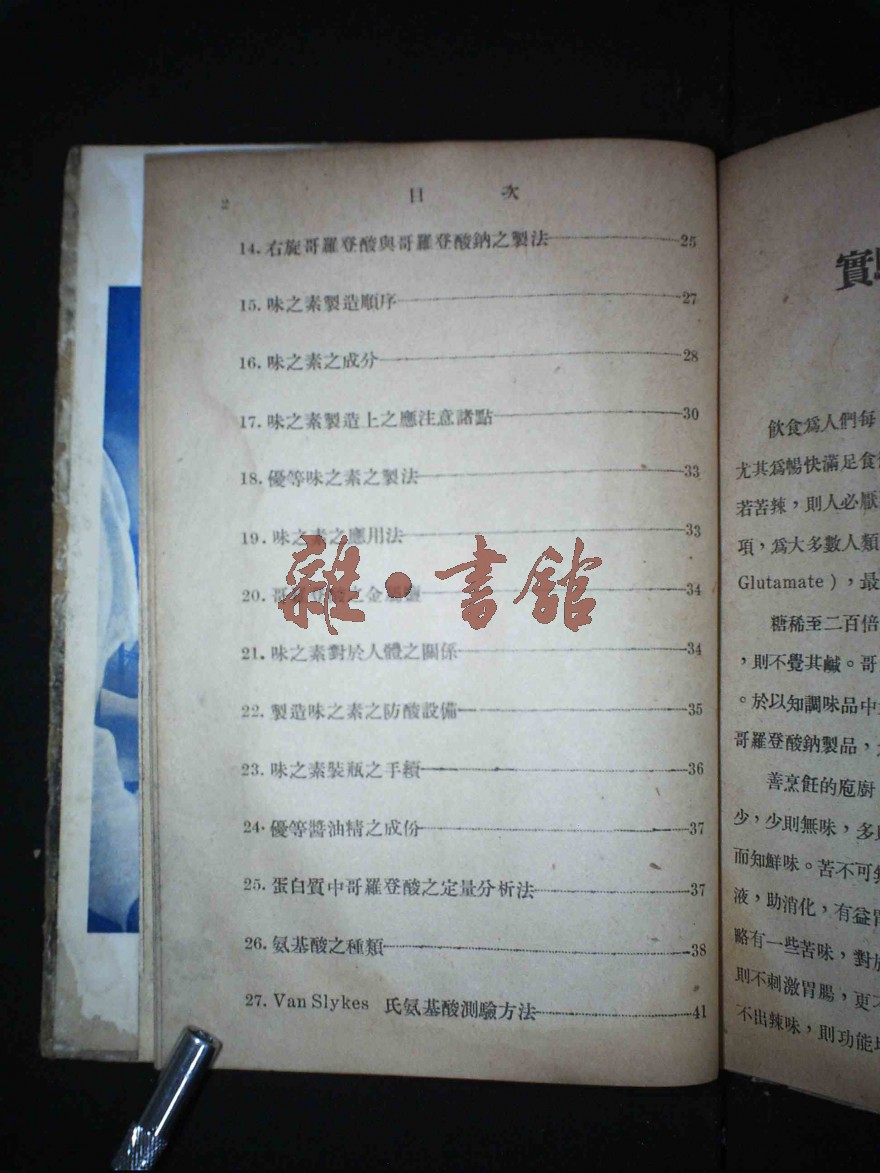 2
目 次
14. 右旋哥羅登酸與哥羅登酸鈉之製法 25
15. 味之素製造順序 27
16. 味之素之成分 28
17. 味之素製造上之應注意諸點 30
18. 優等味之素之製法 33
19. 味之素之應用法 33
20. 哥羅登酸之金屬鹽 34
21. 味之素對於人體之關係 34
22. 製造味之素之防酸設備 35
23. 味之素裝瓶之手續 36
24. 優等醬油精之成份 37
25. 蛋白質中哥羅登酸之定量分析法 37
26. 氨基酸之種類 38
27. Van Slykes 氏氨基酸測驗方法 41
雜·書館
實
飲食爲人們每
尤其爲暢快滿足食
若苦辣，則人必厭
項，爲大多數人類
Glutamate)，最
糖稀至二百倍
，則不覺其鹹。哥
。於以知調味品中
哥羅登酸鈉製品，
善烹飪的庖廚
少，少則無味，多
而知鮮味。苦不可
液，助消化，有益胃
略有一些苦味，對於
則不刺激胃腸，更
不出辣味，則功能